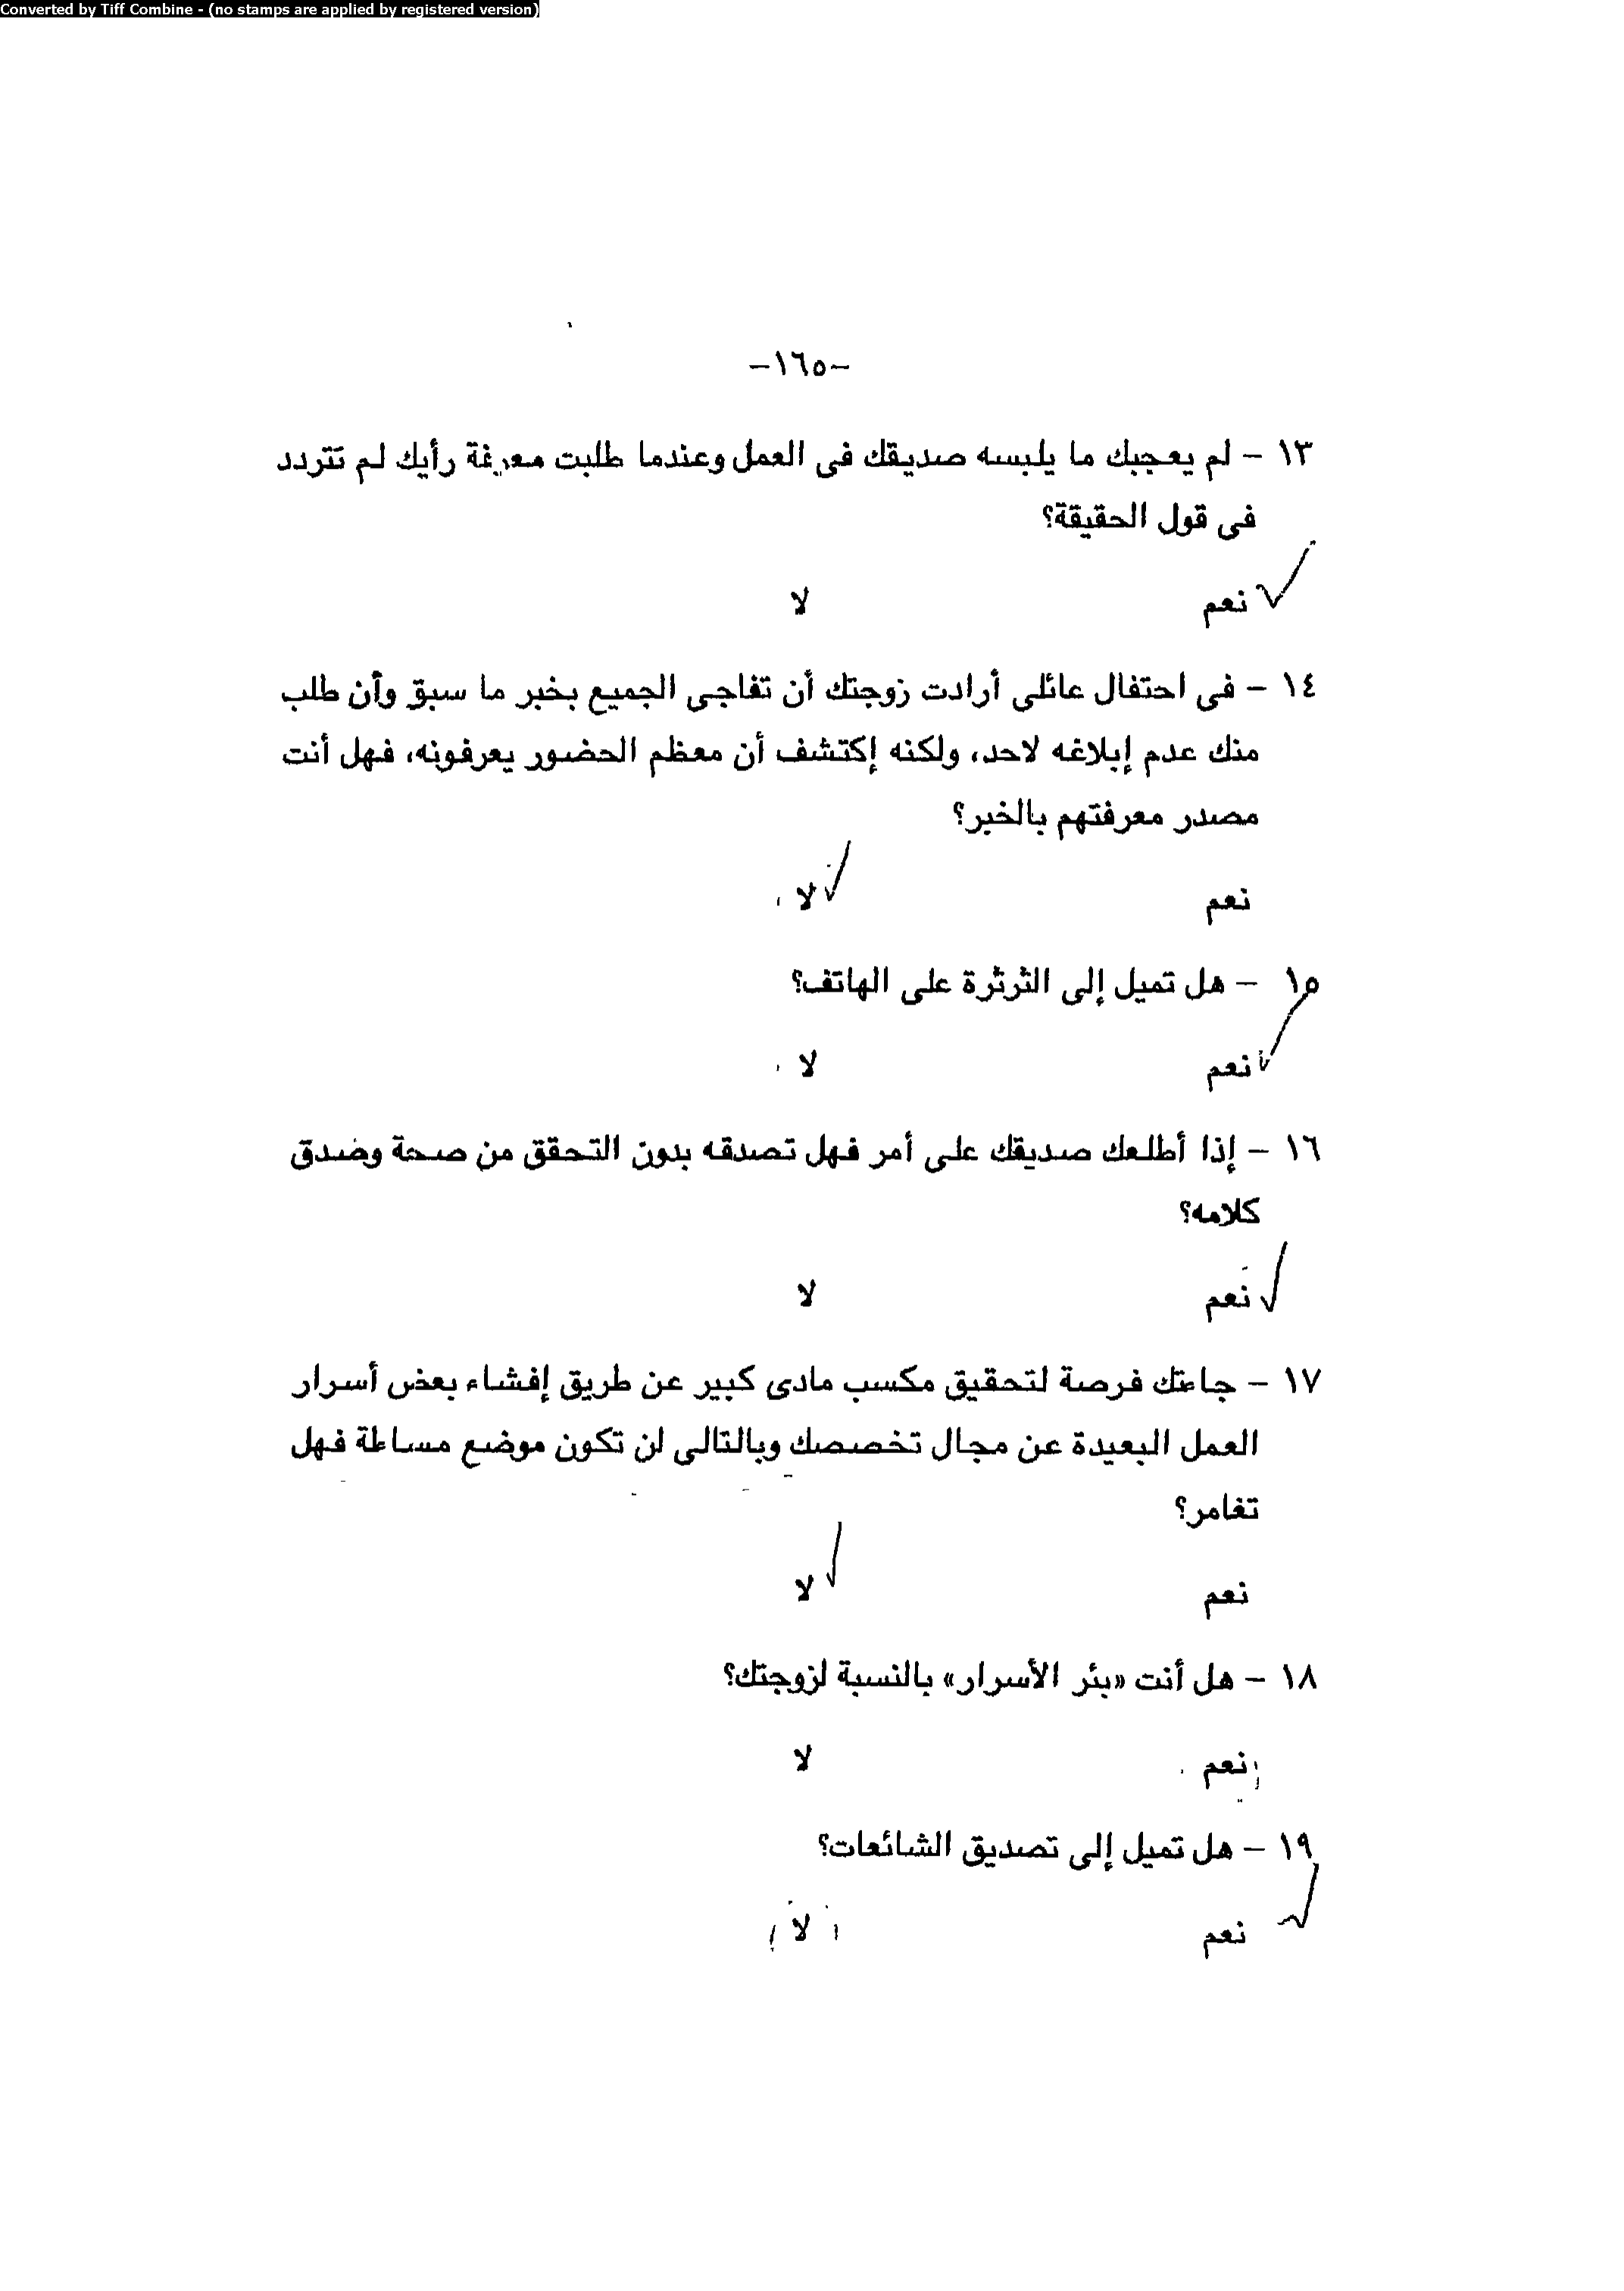 Converted by Tiff Combine - (no stamps are applied by registered version)
-١٦٥-
١٣ - لم يعجبك ما يلبسه صديقك فى العمل وعندما طلبت معرفة رأيك لم تتردد
فى قول الحقيقة؟
✓ نعم لا
١٤ - فى احتفال عائلى أرادت زوجتك أن تفاجى الجميع بخبر ما سبق وأن طلب
منك عدم إبلاغه لاحد، ولكنه إكتشف أن معظم الحضور يعرفونه، فهل أنت
مصدر معرفتهم بالخبر؟
نعم ✓ لا
١٥ - هل تميل إلى الثرثرة على الهاتف؟
✓ نعم لا
١٦ - إذا أطلعك صديقك على أمر فهل تصدقه بدون التحقق من صحة وصدق
كلامه؟
✓ نعم لا
١٧ - جاءتك فرصة لتحقيق مكسب مادى كبير عن طريق إفشاء بعض أسرار
العمل البعيدة عن مجال تخصصك وبالتالى لن تكون موضع مساءلة فهل
تغامر؟
نعم ✓ لا
١٨ - هل أنت «بئر الأسرار» بالنسبة لزوجتك؟
نعم لا
١٩ - هل تميل إلى تصديق الشائعات؟
✓ نعم لا